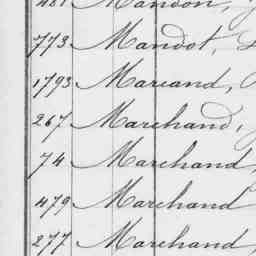 481 Mandon,
773 Mandot,
1793 Mareand,
267 Marchand,
74 Marchand,
479 Marchand
277 Marchand,